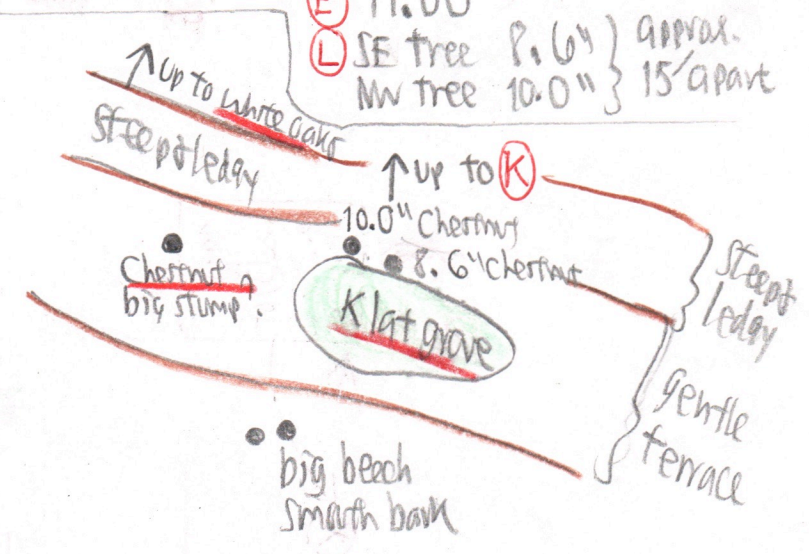 E 11.00
L SE tree 8.6" } approx.
NW tree 10.0" } 15' apart
↑ up to white oaks
steep & ledgy
↑ up to K
10.0" Chestnut
8.6" Chestnut
Chestnut
big stump?
K lat grove
steep &
ledgy
gentle
terrace
big beech
smooth bark